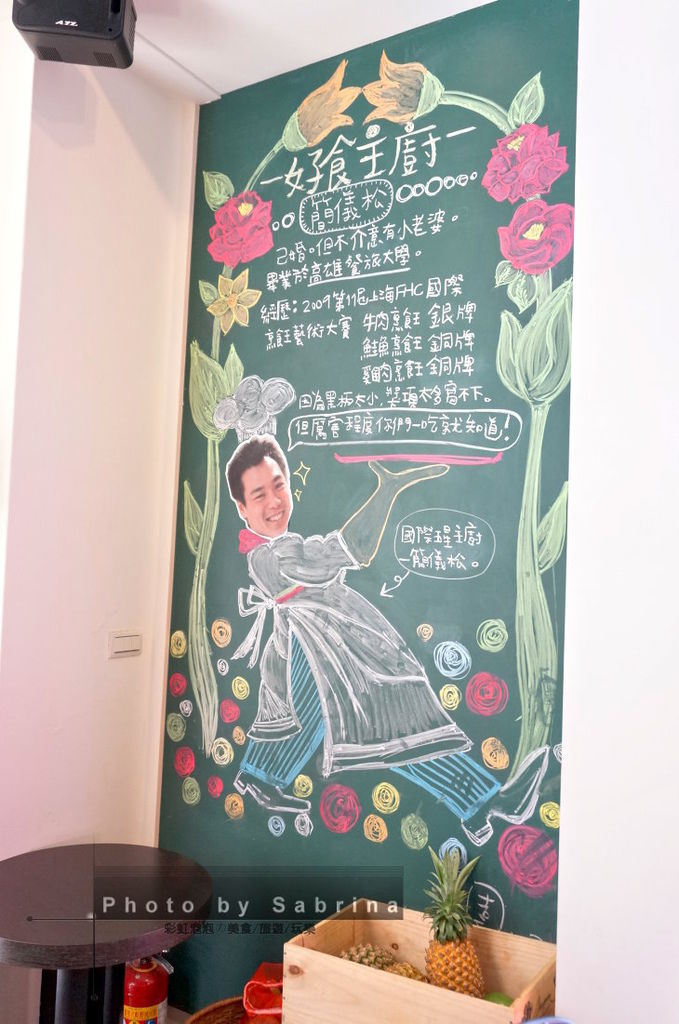 ATL
一好食主廚一
簡儀松
已婚。但不介意有小老婆。
畢業於高雄餐旅大學。
經歷：2009第11屆上海FHC國際
烹飪藝術大賽 牛肉烹飪 銀牌
鮭魚烹飪 銅牌
雞肉烹飪 銅牌
因為黑板太小，獎項太多寫不下。
但厲害程度你們一吃就知道！
國際五星主廚
一簡儀松。
Photo by Sabrina
彩虹泡泡/美食/旅遊/玩樂